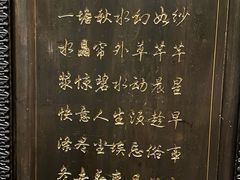 一塘秋水幻如纱
水晶帘外草芊芊
浆惊碧水动晨星
快意人生须趁早
涤尽尘埃忘俗事